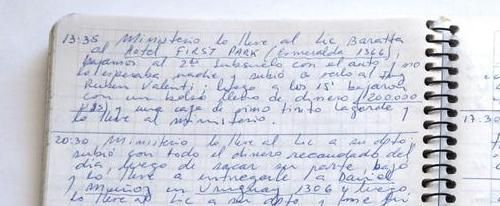 13:35 Ministerio lo llevé al Lic Baratta
al Hotel FIRST PARK (Esmeralda 1366),
bajamos al 2do subsuelo con el auto, no
lo esperaba nadie y subió a verlo al Ing
Ruben Valenti, luego a los 15' bajaron
con un bolso lleno de dinero (1200.000
) y una caja de vino tinto
lo llevé al ministerio.
20:30 Ministerio lo llevé al Lic a su dpto,
subió con todo el dinero recaudado del
día luego de sacar una parte bajó
y lo llevé a entregarle a Daniel
Muñoz en Uruguay 1306 y luego
lo llevé al Lic a su dpto y me fui
17:30